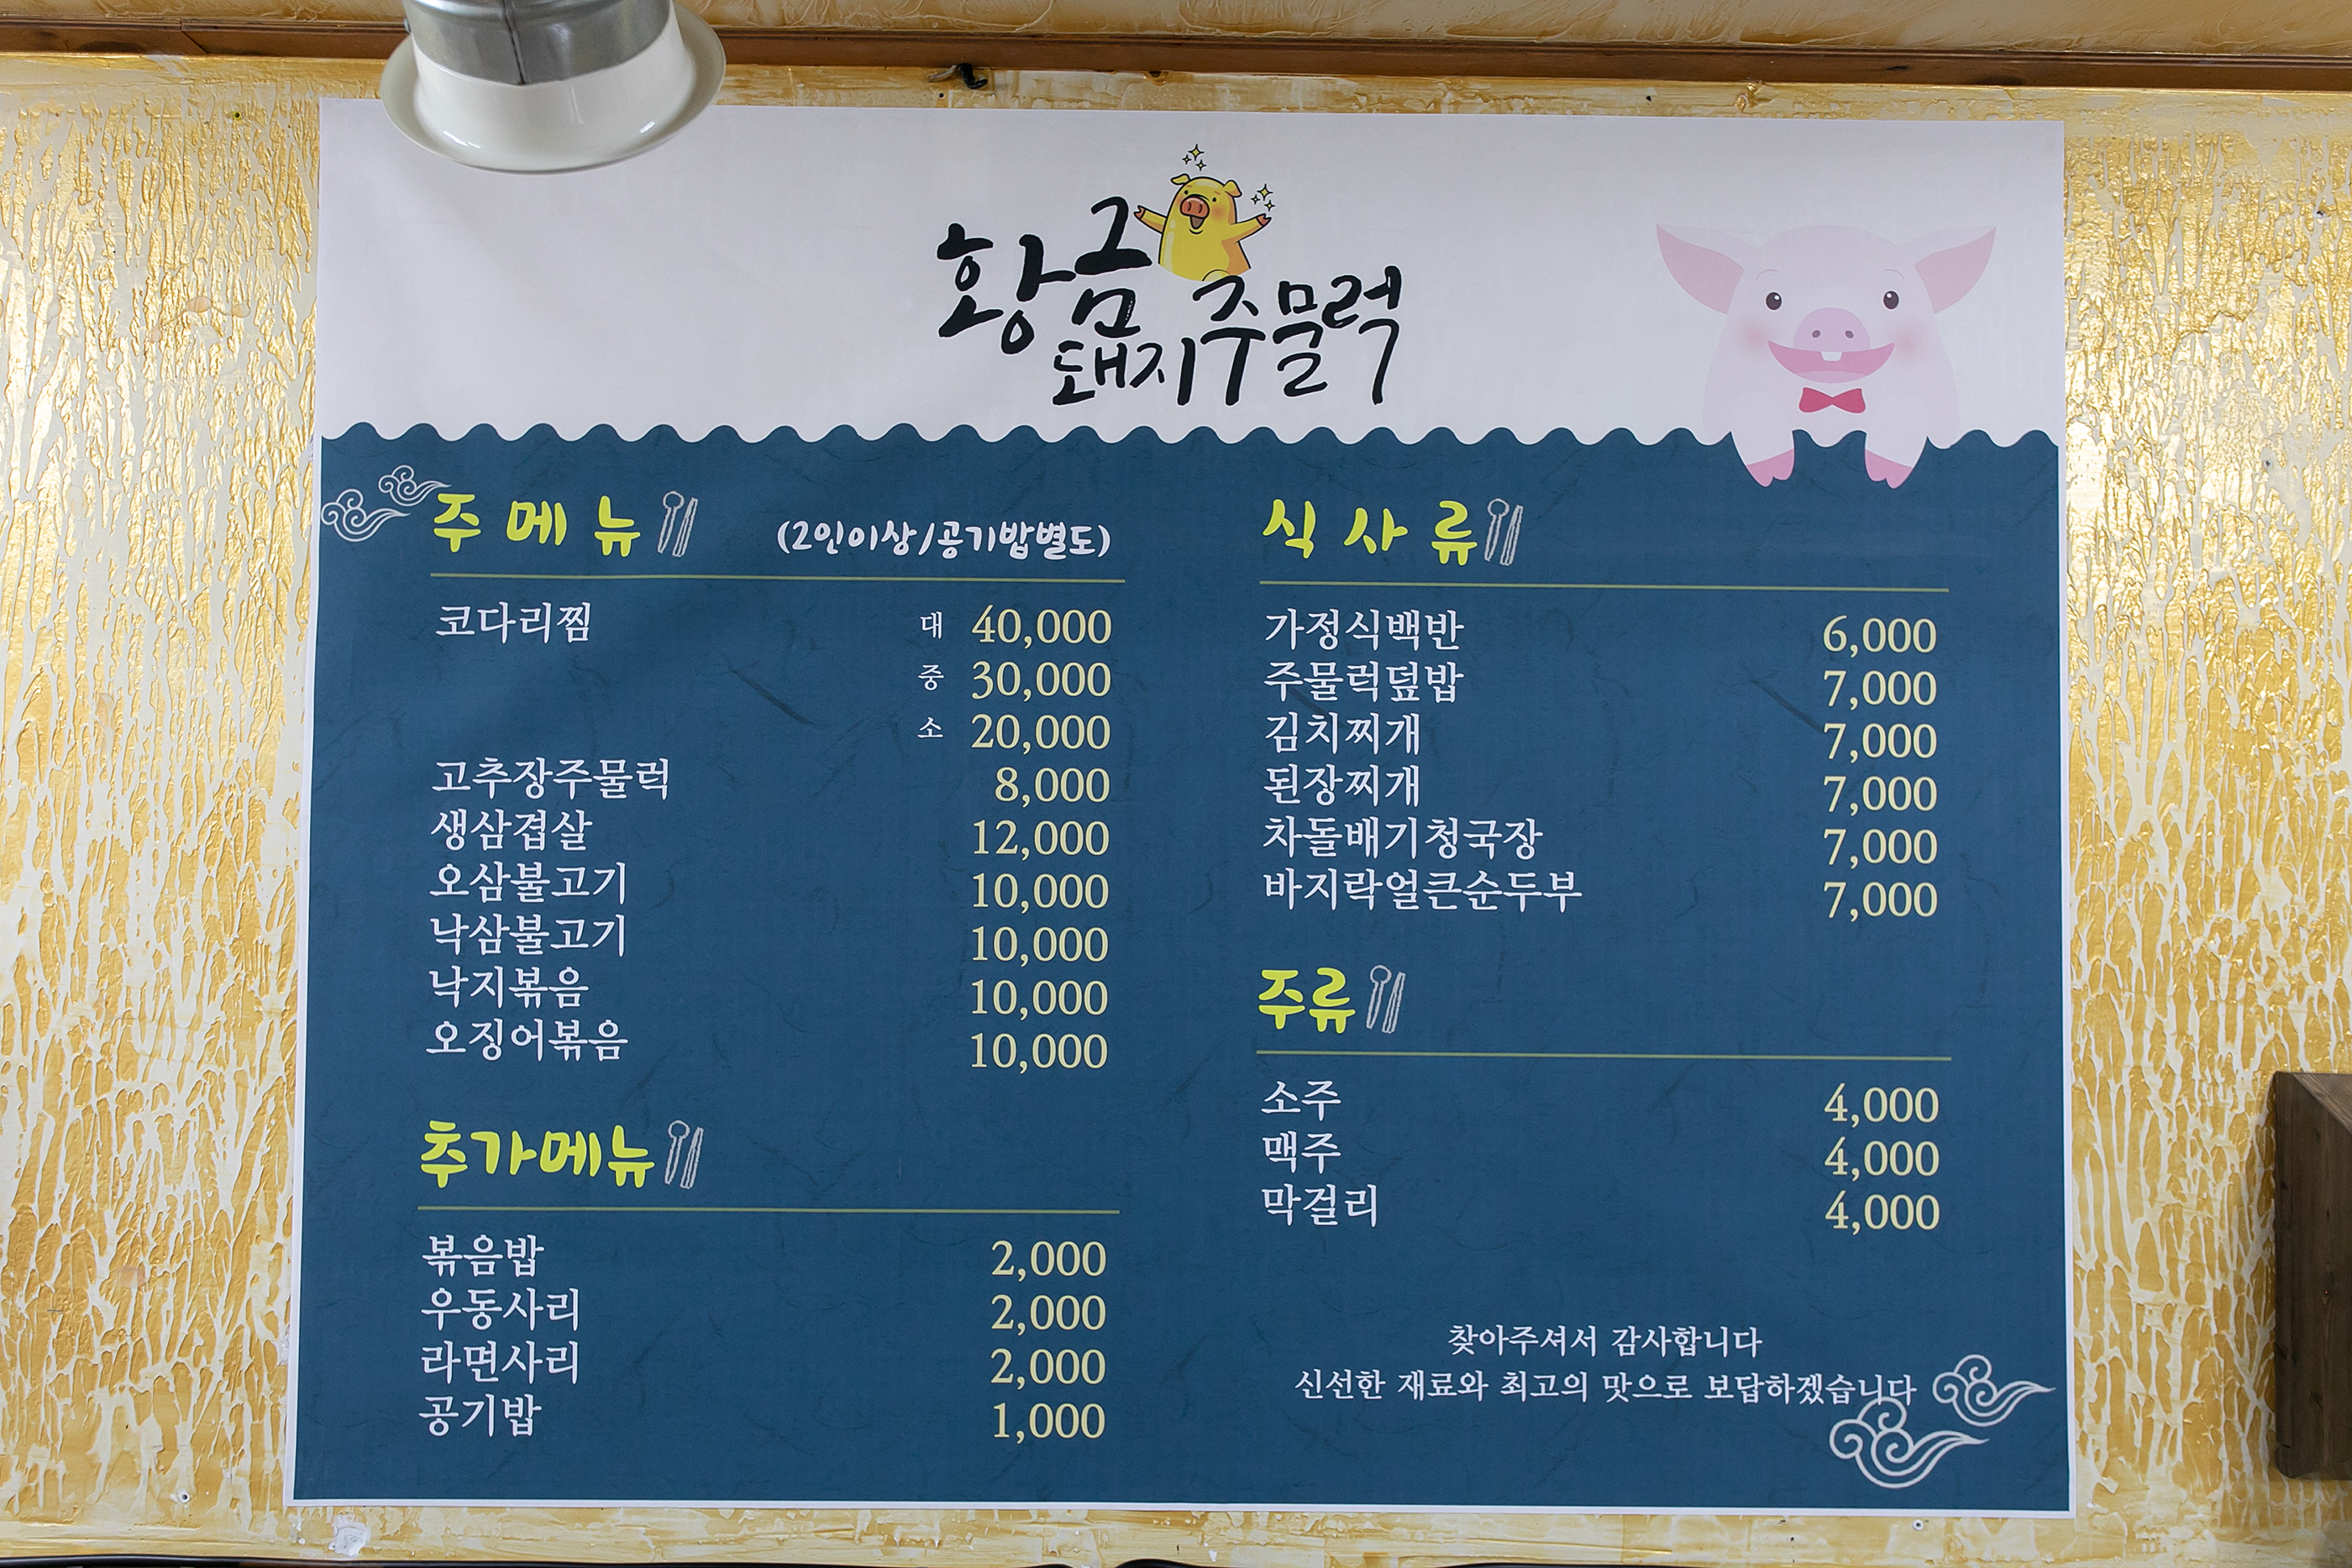 황금
돼지주물럭
주 메 뉴 (2인이상/공기밥별도)
코다리찜 대 40,000
중 30,000
소 20,000
고추장주물럭 8,000
생삼겹살 12,000
오삼불고기 10,000
낙삼불고기 10,000
낙지볶음 10,000
오징어볶음 10,000
추가메뉴
볶음밥 2,000
우동사리 2,000
라면사리 2,000
공기밥 1,000
식 사 류
가정식백반 6,000
주물럭덮밥 7,000
김치찌개 7,000
된장찌개 7,000
차돌배기청국장 7,000
바지락얼큰순두부 7,000
주류
소주 4,000
맥주 4,000
막걸리 4,000
찾아주셔서 감사합니다
신선한 재료와 최고의 맛으로 보답하겠습니다